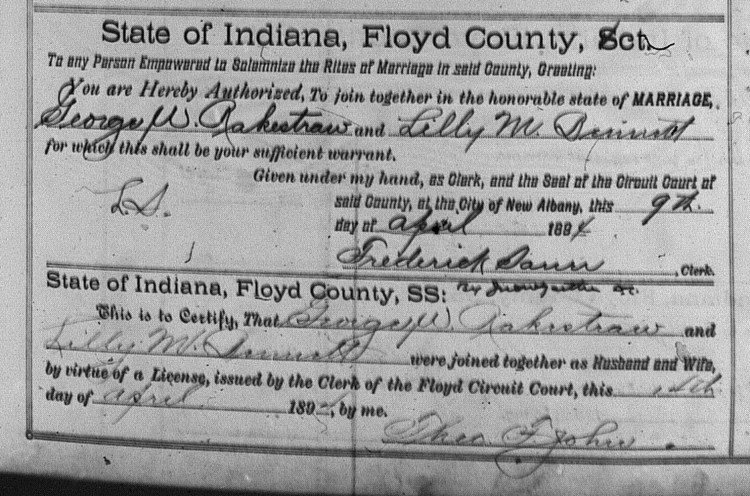 State of Indiana, Floyd County, Sct.
To any Person Empowered to Solemnize the Rites of Marriage in said County, Greeting:
You are Hereby Authorized, To join together in the honorable state of MARRIAGE,
George W. Rakestraw and Lilly M. Bennett
for which this shall be your sufficient warrant.
Given under my hand, as Clerk, and the Seal of the Circuit Court of
said County, at the City of New Albany, this 9th.
L.S.
day of April 1894
Frederick Sauer, Clerk.
State of Indiana, Floyd County, SS:
This is to Certify, That George W. Rakestraw and
Lilly M. Bennett were joined together as Husband and Wife,
by virtue of a License, issued by the Clerk of the Floyd Circuit Court, this
day of April 189 , by me.
Theo F. John